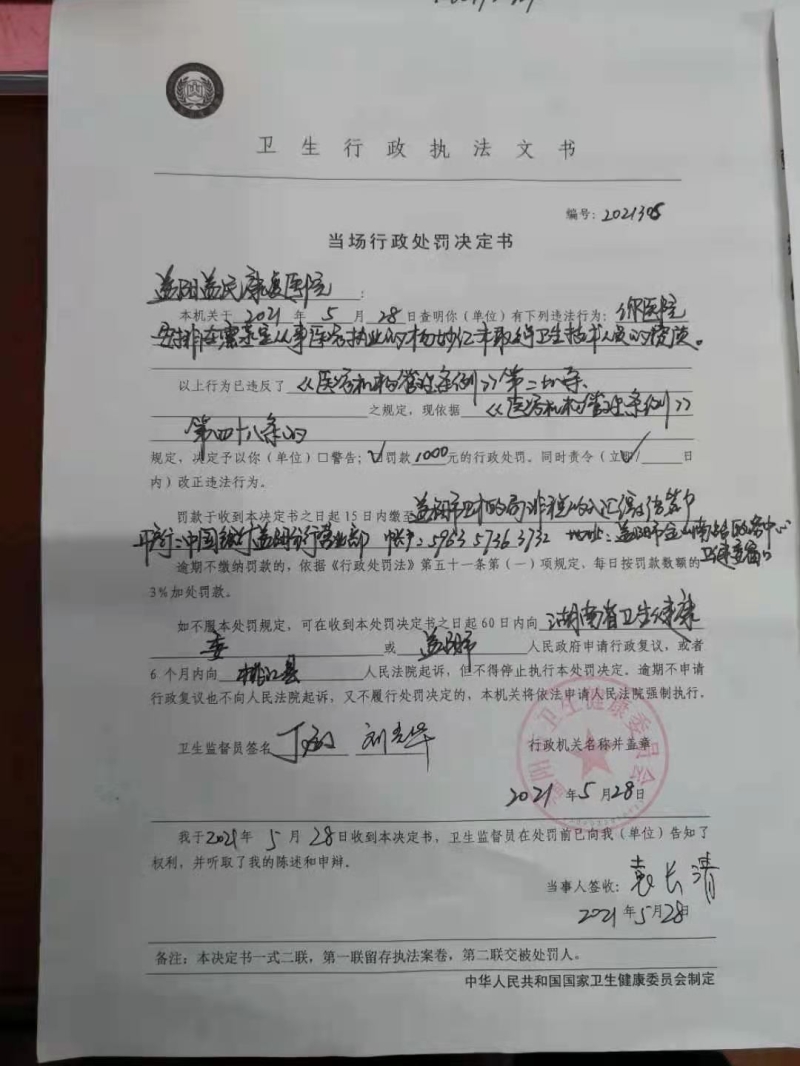 卫生行政执法文书
编号：2021305
当场行政处罚决定书
益阳益民康复医院：
本机关于2021年5月28日查明你（单位）有下列违法行为：你医院
安排在 室从事医疗执业的杨 未取得卫生技术人员的资质。
以上行为已违反了《医疗机构管理条例》第二十八条
之规定，现依据《医疗机构管理条例》
第四十八条的
规定，决定予以你（单位）□警告；√罚款1000元的行政处罚。同时责令（立即√/ 日
内）改正违法行为。
罚款于收到本决定书之日起15日内缴至益阳市 局非税收入汇缴结算户
开户行：中国银行益阳分行营业部 帐户：5963 5736 3732 地址：益阳市 政务中心
卫健委窗口
逾期不缴纳罚款的，依据《行政处罚法》第五十一条第（一）项规定，每日按罚款数额的
3%加处罚款。
如不服本处罚规定，可在收到本处罚决定书之日起60日内向湖南省卫生健康
委或益阳市人民政府申请行政复议，或者
6个月内向桃江县人民法院起诉，但不得停止执行本处罚决定。逾期不申请
行政复议也不向人民法院起诉，又不履行处罚决定的，本机关将依法申请人民法院强制执行。
卫生监督员签名 丁 刘 华 行政机关名称并盖章
益阳市卫生健康委员会
2021年5月28日
我于2021年5月28日收到本决定书，卫生监督员在处罚前已向我（单位）告知了
权利，并听取了我的陈述和申辩。
当事人签收：袁长清
2021年5月28日
备注：本决定书一式二联，第一联留存执法案卷，第二联交被处罚人。
中华人民共和国国家卫生健康委员会制定